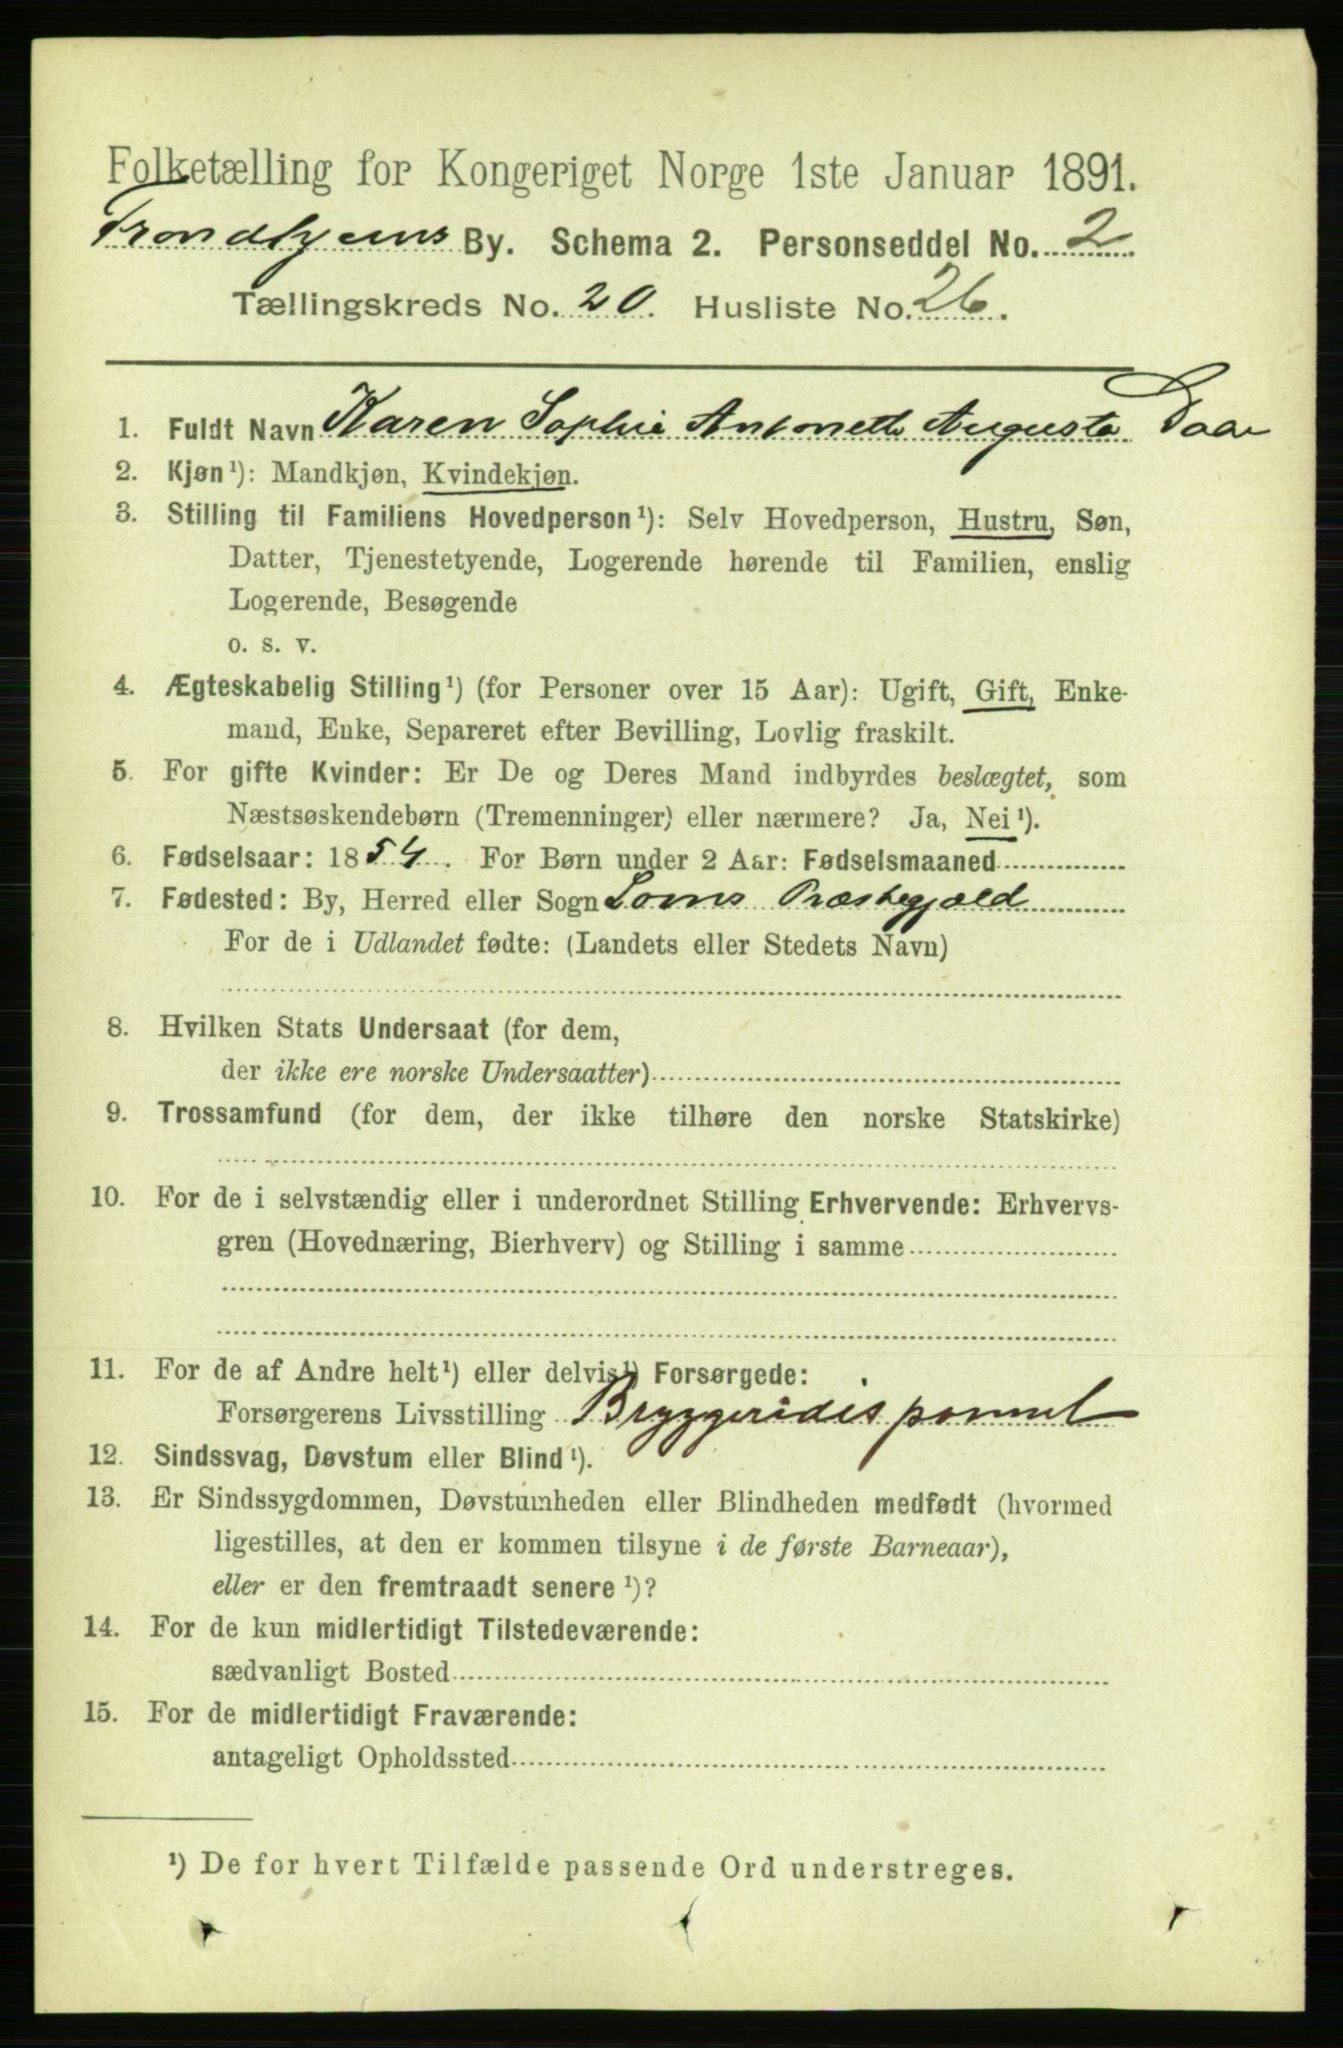 Folketælling for Kongeriget Norge 1ste Januar 1891.
Trondhjems By. Schema 2. Personseddel No. 2
Tællingskreds No. 20. Husliste No. 26.
1. Fuldt Navn Karen Sophie Antonette Augusta Daae
2. Kjøn¹): Mandkjøn, Kvindekjøn.
3. Stilling til Familiens Hovedperson¹): Selv Hovedperson, Hustru, Søn,
Datter, Tjenestetyende, Logerende hørende til Familien, enslig
Logerende, Besøgende
o. s. v.
4. Ægteskabelig Stilling¹) (for Personer over 15 Aar): Ugift, Gift, Enke-
mand, Enke, Separeret efter Bevilling, Lovlig fraskilt.
5. For gifte Kvinder: Er De og Deres Mand indbyrdes beslægtet, som
Næstsøskendebørn (Tremenninger) eller nærmere? Ja, Nei¹).
6. Fødselsaar: 1854. For Børn under 2 Aar: Fødselsmaaned
7. Fødested: By, Herred eller Sogn Loms Præstegjæld
For de i Udlandet fødte: (Landets eller Stedets Navn)
8. Hvilken Stats Undersaat (for dem,
der ikke ere norske Undersaatter)
9. Trossamfund (for dem, der ikke tilhøre den norske Statskirke)
10. For de i selvstændig eller i underordnet Stilling Erhvervende: Erhvervs-
gren (Hovednæring, Bierhverv) og Stilling i samme
11. For de af Andre helt¹) eller delvis¹) Forsørgede:
Forsørgerens Livsstilling Bryggeridisponent
12. Sindssvag, Døvstum eller Blind¹).
13. Er Sindssygdommen, Døvstumheden eller Blindheden medfødt (hvormed
ligestilles, at den er kommen tilsyne i de første Barneaar),
eller er den fremtraadt senere¹)?
14. For de kun midlertidigt Tilstedeværende:
sædvanligt Bosted
15. For de midlertidigt Fraværende:
antageligt Opholdssted
¹) De for hvert Tilfælde passende Ord understreges.